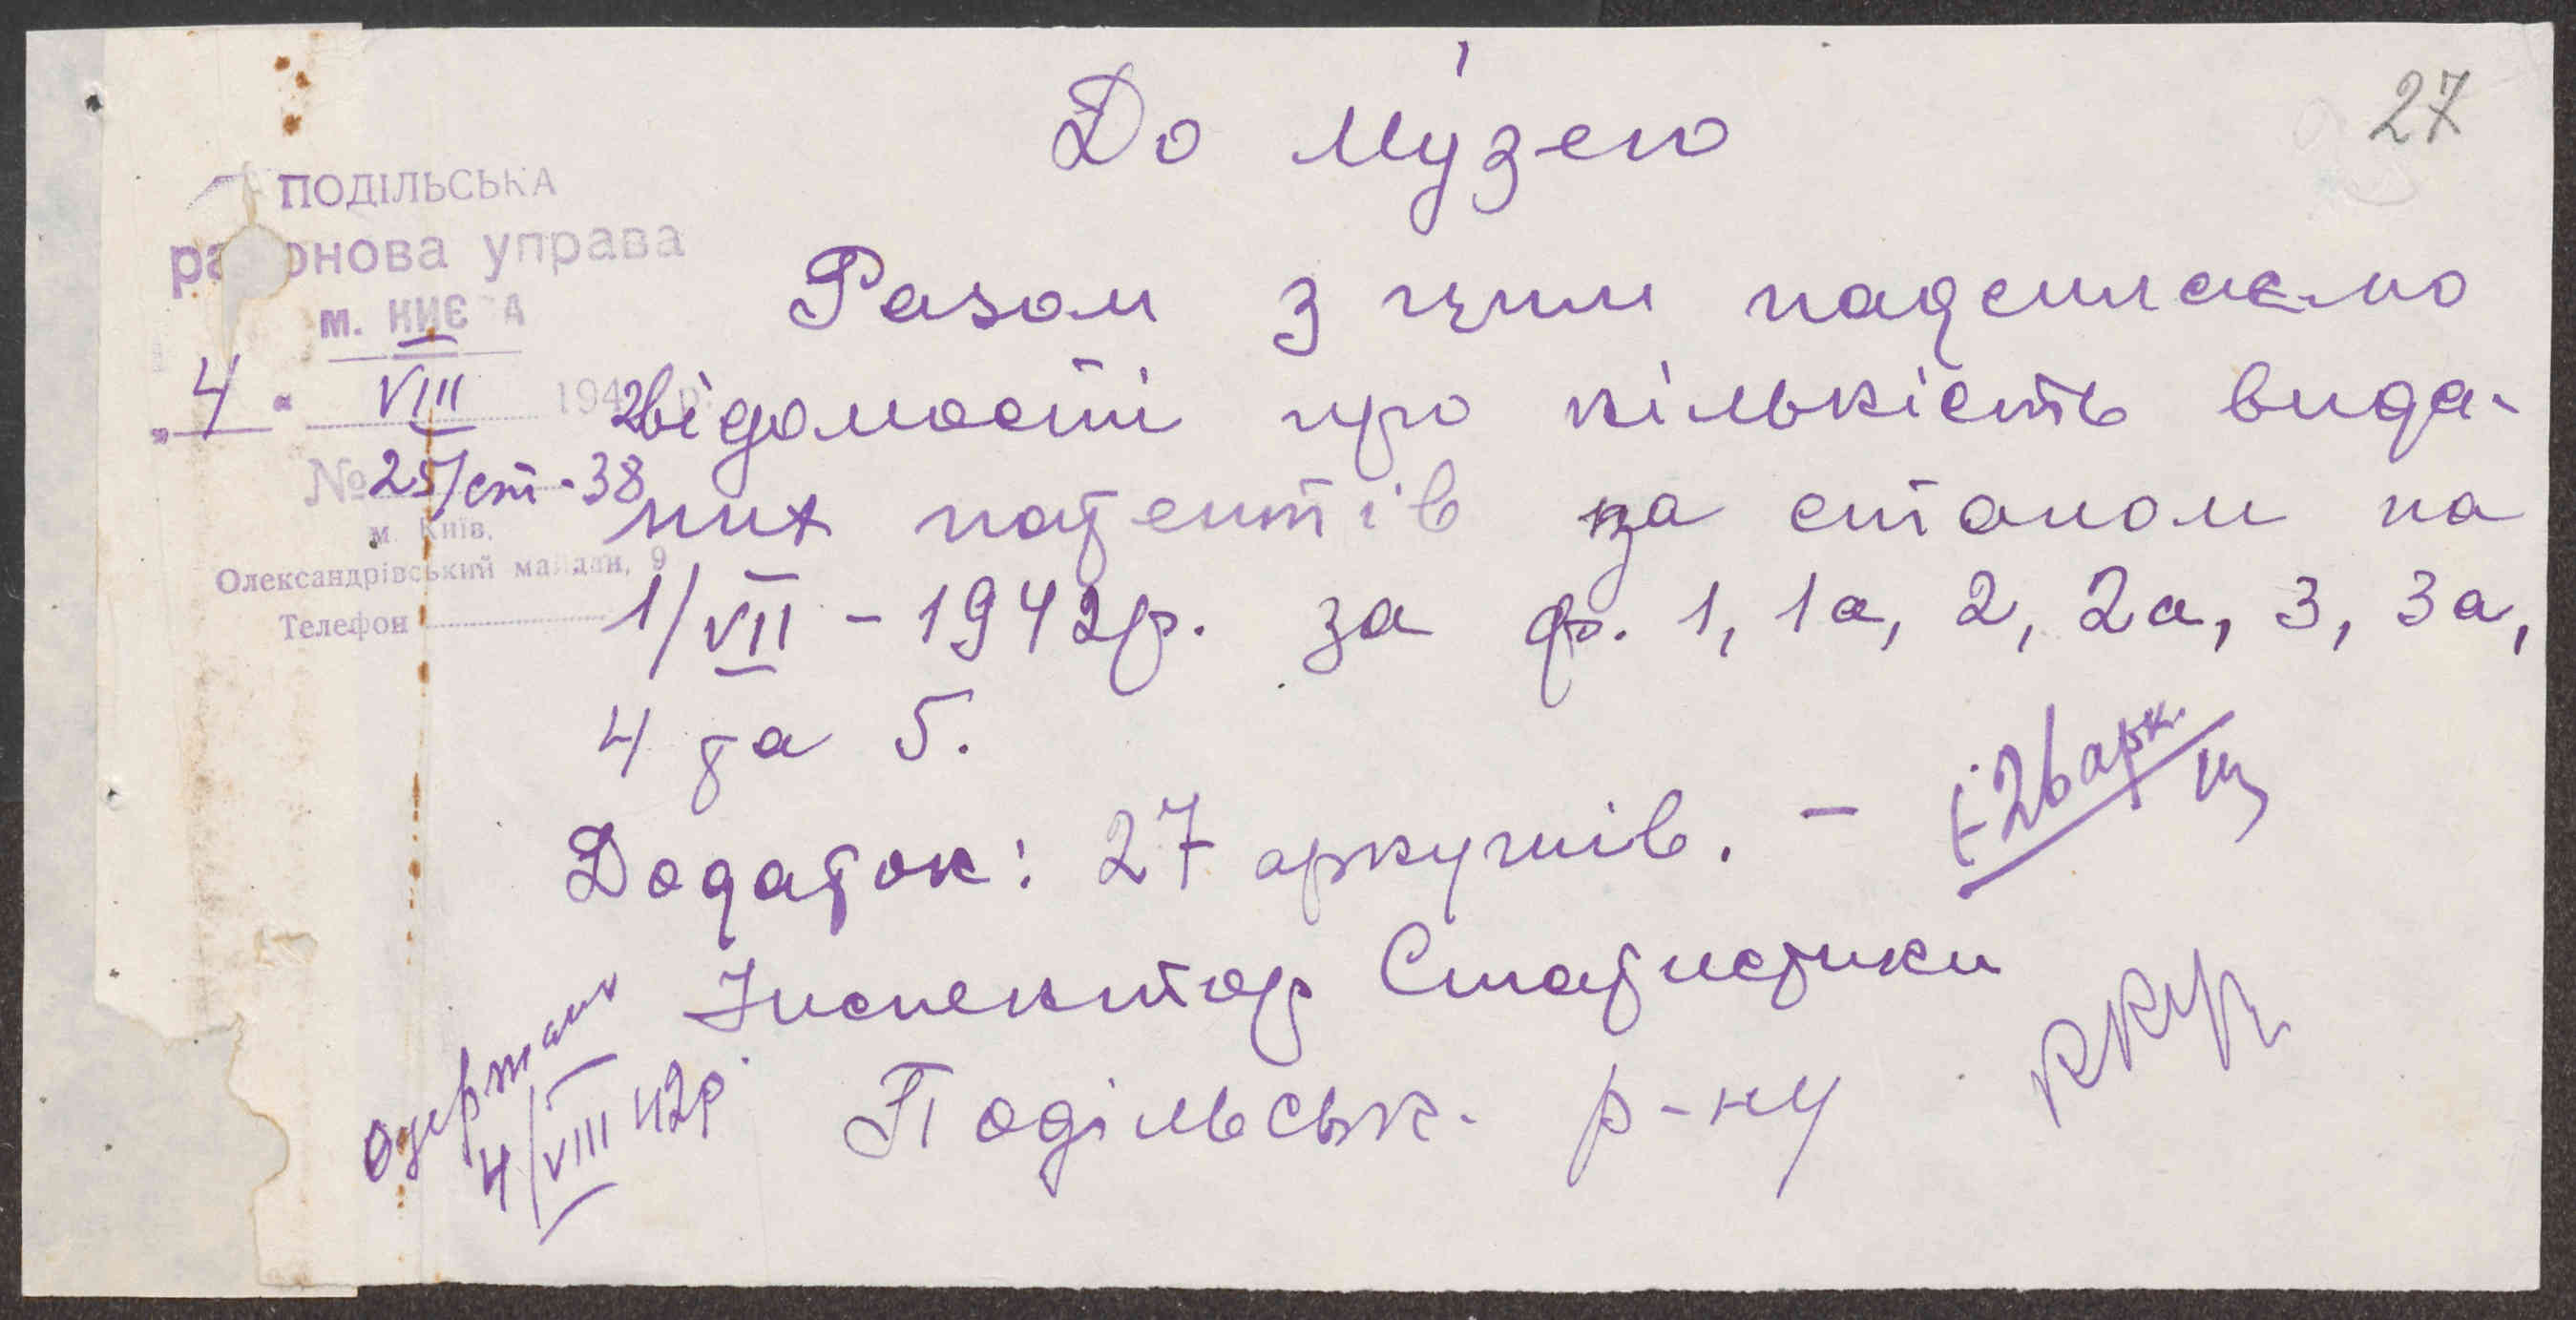 27
До Му́зею
ПОДІЛЬСЬКА
районова управа
м. КИЄВА
"4" VIII 1942 р.
№ 25/ст-38
м. Київ,
Олександрівський майдан, 9
Телефон
Разом з цим надсилаємо
відомості про кількість вида-
них патентів за станом на
1/VII - 1942р. за ф. 1, 1а, 2, 2а, 3, 3а,
4 та 5.
Додаток: 27 аркушів. -
26 арк.
Інспектор Статистики
Подільськ. р-ну
одержано
4/VIII 42р.